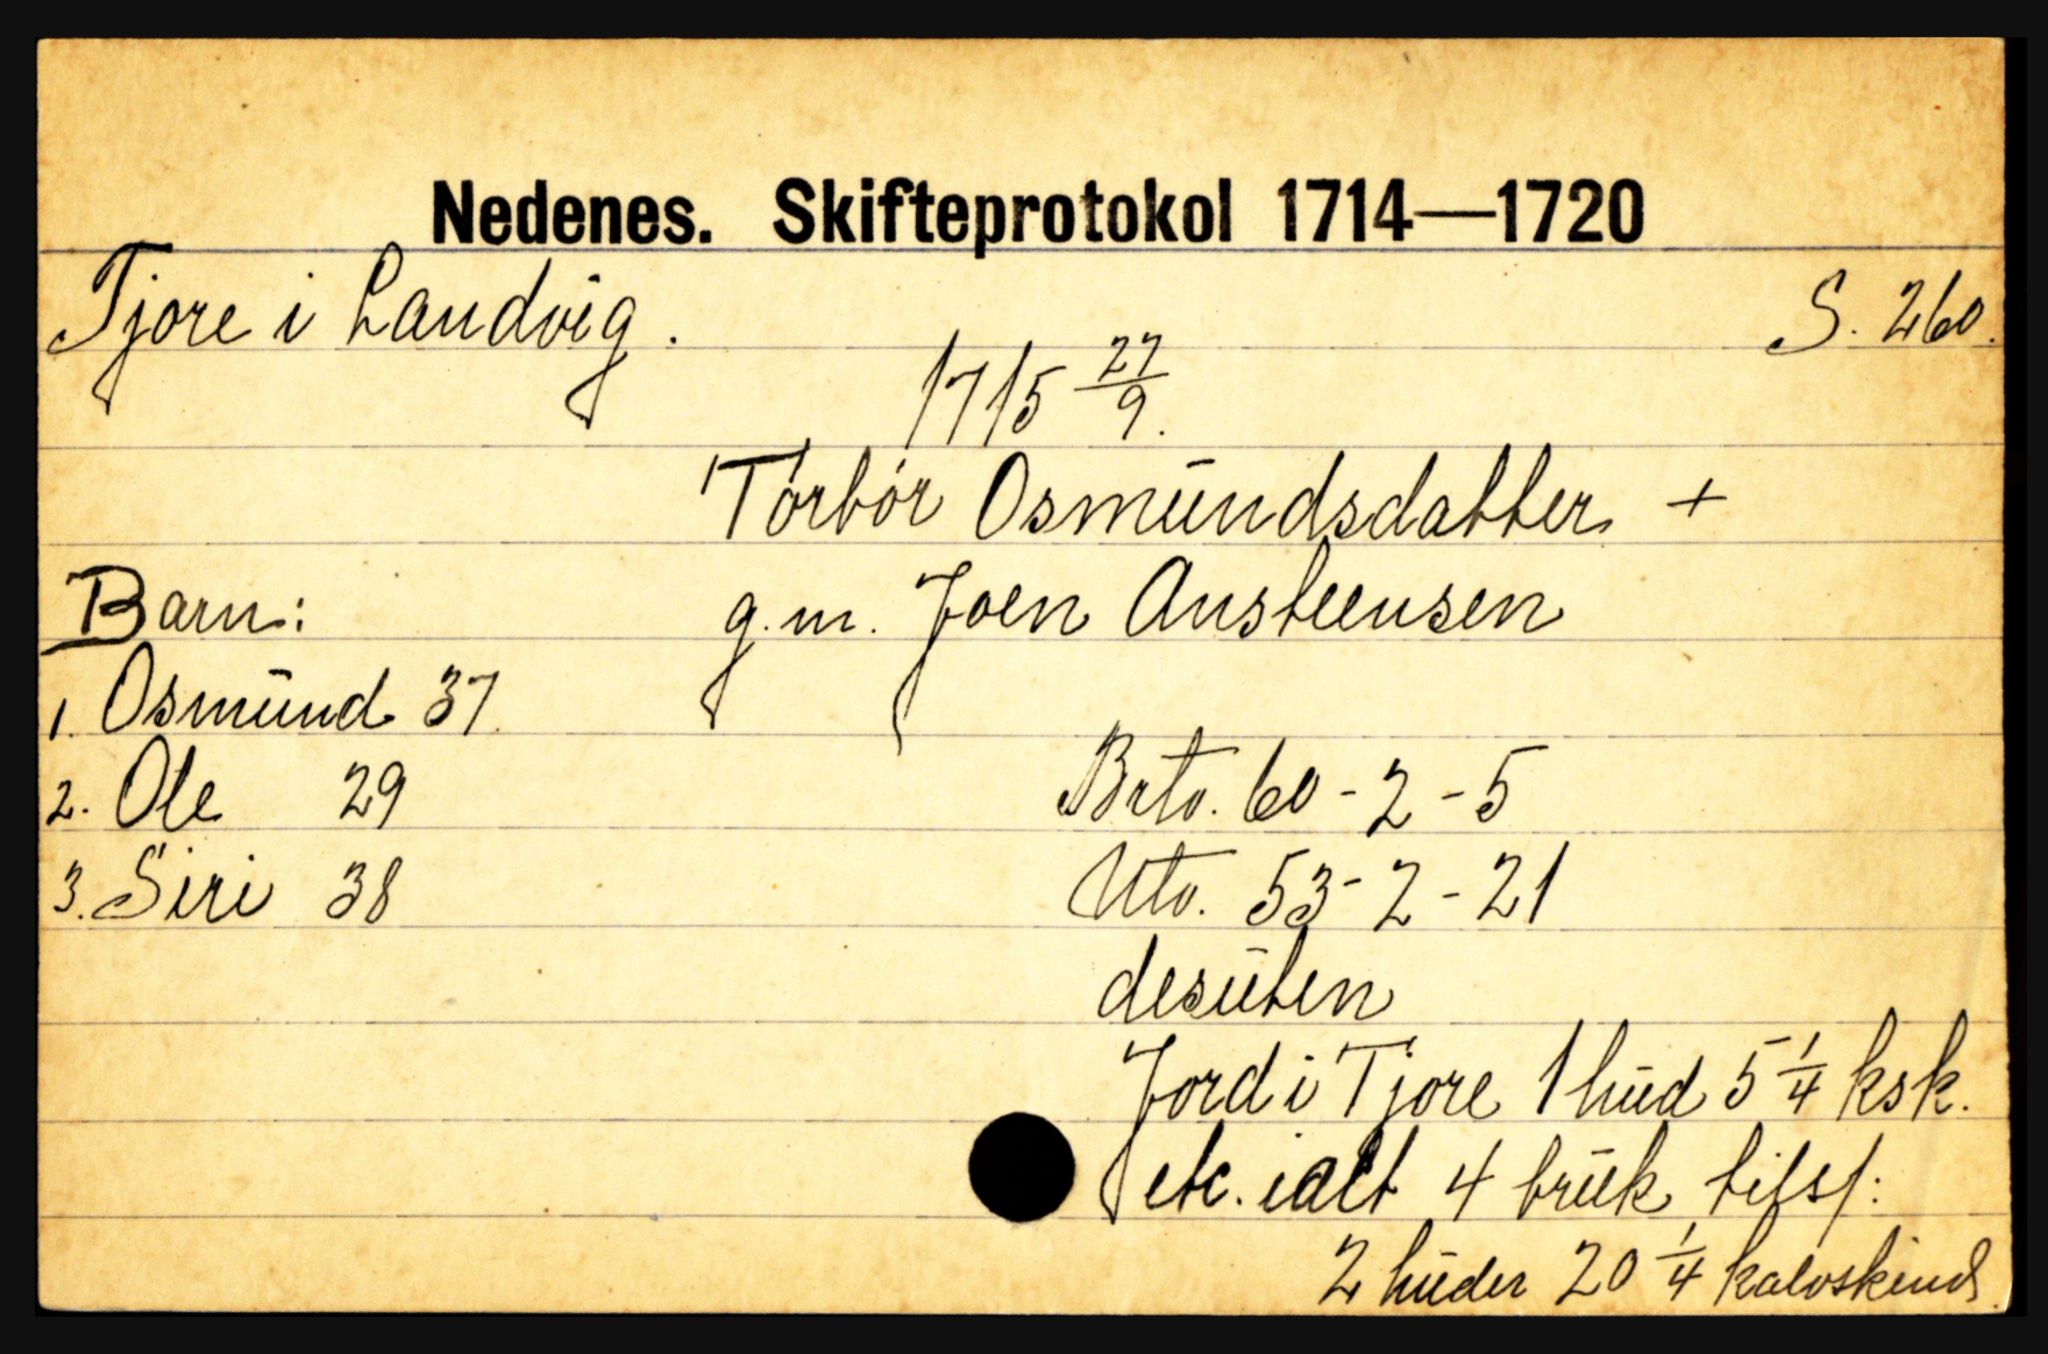 Nedenes. Skifteprotokol 1714—1720
Tjore i Landvig. S. 260.
1715 27/9.
Torbor Osmundsdatter +
Barn: g.m. Joen Austeensen
1. Osmund 37.
2. Ole 29 Brto. 60 - 2 - 5
3. Siri 38 Nto. 53 - 2 - 21
desuten
Jord i Tjore 1 hud 5 1/4 ksk.
etc. ialt 4 bruk tils/:
2 huder 20 1/4 kalvskind.